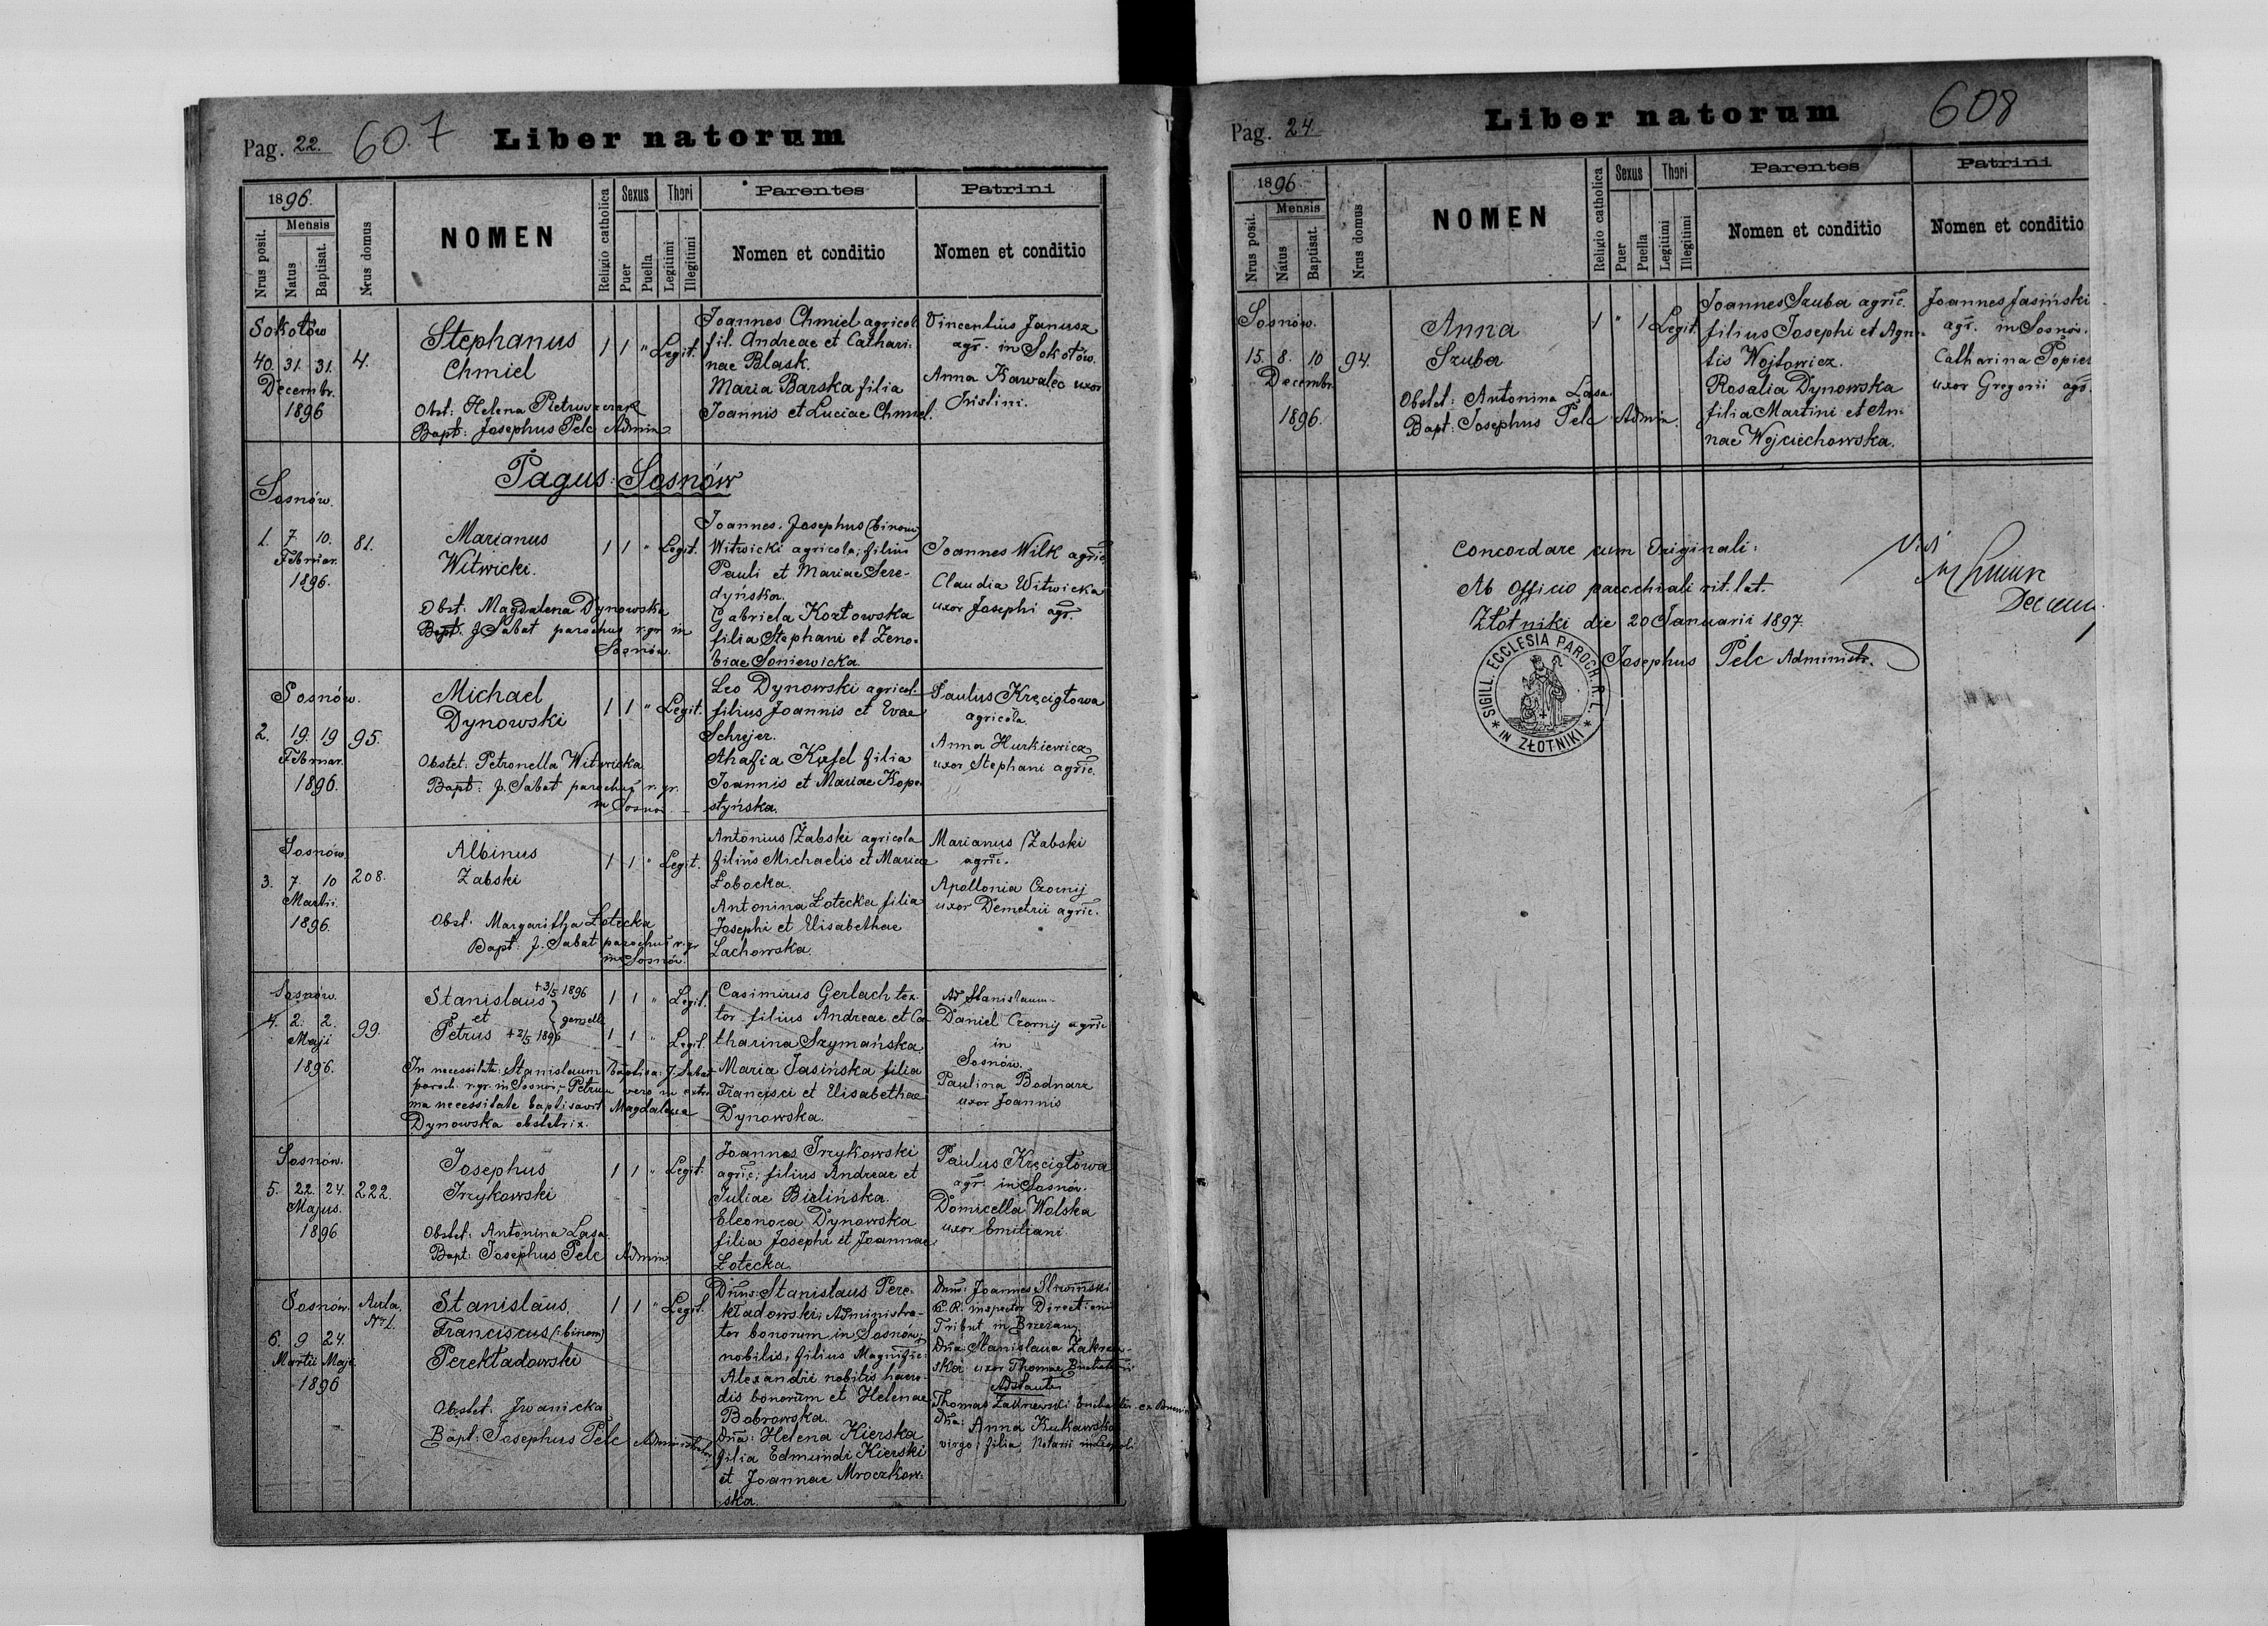 Pag. 22. 607 Liber natorum
1896.
Nrus posit.
Mensis
Natus
Baptisat.
Nrus domus
NOMEN
Religio catholica
Sexus
Puer
Puella
Thori
Legitimi
Illegitimi
Parentes
Nomen et conditio
Patrini
Nomen et conditio
Sokołów
40. 31. 31. 4.
Decembr.
1896
Stephanus
Chmiel
Obst: Helena
Bapt: Josephus Pelc Admin.
1 1 " Legit.
Joannes Chmiel agricol.
fil. Andreae et Cathari-
nae Blask.
Maria Barska filia
Joannis et Luciae Chmiel.
Vincentius Janusz
agr. in Sokołów.
Anna Kawalec uxor
Justini.
Pagus: Sosnów
Sosnów.
1. 7. 10. 81.
Februar.
1896.
Marianus
Witwicki.
Obst: Magdalena Dynowska
Bapt. J. Sabat parochus r. gr. in
Sosnów.
1 1 " Legit.
Joannes. Josephus (binom)
Witwicki agricola; filius
Pauli et Mariae Sere-
dyńska.
Gabriela Kozłowska
filia Stephani et Zeno-
biae Soniewicka.
Joannes Wilk agric.
Claudia Witwicka
uxor Josephi agr.
Sosnów.
2. 19. 19 95.
Februar.
1896.
Michael
Dynowski
Obstet: Petronella Witwicka
Bapt: J. Sabat parochus r. gr.
in Sosnów.
1 1 " Legit.
Leo Dynowski agricol.
filius Joannis et Evae
Schrejer.
Ahafia Kysel filia
Joannis et Mariae Kope-
styńska.
Paulus Kręcigłowa
agricola.
Anna Hurkiewicz
uxor Stephani agric.
Sosnów.
3. 7. 10 208.
Martii.
1896.
Albinus
Żabski
Obst: Margaritha Łotecka
Bapt: J. Sabat parochus r. gr
in Sosnów.
1 1 " Legit.
Antonius Żabski agricola
filius Michaelis et Mariae
Łobocka.
Antonina Łotecka filia
Josephi et Elisabethae
Lachowska.
Marianus Żabski
agric.
Apollonia Czornij
uxor Demetrii agric.
Sosnów.
4. 2. 2. 99.
Maji
1896.
Stanislaus +3/5 1896
et gemelli
Petrus +2/5 1896
In necessitate: Stanislaum baptisa: J. Sabat
paroch. r. gr. in Sosnów, - Petrum vero in extre-
ma necessitate baptisavit Magdalena
Dynowska obstetrix.
1 1 " Legit.
1 1 " Legit.
Casimirus Gerlach tex-
tor filius Andreae et Ca-
tharina Szymańska.
Maria Jasińska filia
Francisci et Elisabethae
Dynowska.
Ad Stanislaum-
Daniel Czornij agric
in
Sosnów.
Paulina Bodnarz
uxor Joannis
Sosnów.
5. 22. 24. 222.
Majus.
1896
Josephus
Irzykowski
Obstet: Antonina Lasa.
Bapt: Josephus Pelc Admin.
1 1 " Legit.
Joannes Irzykowski
agric; filius Andreae et
Juliae Bielińska.
Eleonora Dynowska
filia Josephi et Joannae
Łotecka.
Paulus Kręcigłowa
agr. in Sosnów.
Domicella Wolska
uxor Emiliani
Sosnów. Aula.
Nr 1.
6. 9 24.
Martii Maji.
1896
Stanislaus.
Franciscus (: binom)
Perekładowski
Obstet: Iwanicka
Bapt: Josephus Pelc Administrator.
1 1 " Legit.
Dnus: Stanislaus Pere-
kładowski; Administra-
tor bonorum in Sosnów;
nobilis, filius Magnific:
Alexandri nobilis haere-
dis bonorum et Helenae
Bobrowska.
Dna: Helena Kierska
filia Edmundi Kierski
et Joannae Mroczkow-
ska.
Dnus: Joannes Śliwiński
C. R. inspector
Tribut in Brzeżany
Dna: Stanislava
uxor Thomae
Adstantes
Thomas Zakrzewski
Dna: Anna Kukawska
virgo; filia Notarii in Leopoli
Pag. 24 Liber natorum 608
1896.
Nrus posit.
Mensis
Natus
Baptisat.
Nrus domus
NOMEN
Religio catholica
Sexus
Puer
Puella
Thori
Legitimi
Illegitimi
Parentes
Nomen et conditio
Patrini
Nomen et conditio
Sosnów.
15. 8. 10 94.
Decembr.
1896.
Anna
Szuba
Obstet: Antonina Lasa.
Bapt: Josephus Pelc Admin.
1 " 1 Legit.
Joannes Szuba agric.
filius Josephi et Agne-
tis Wojtowicz.
Rosalia Dynowska
filia Martini et An-
nae Wojciechowska.
Joannes Jasiński
agr. in Sosnów.
Catharina Popiel
uxor Gregorii agr.
Concordare cum Originali:
Ab Officio parochiali rit. lat.
Złotniki die 20 Januarii 1897.
Josephus Pelc Administr.
Vidi
SIGILL. ECCLESIA PAROCH. R. L. * IN ZŁOTNIKI *